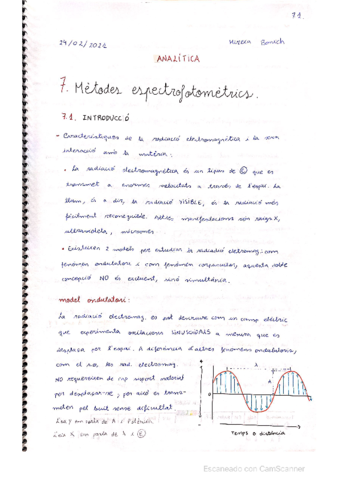 7.1
14/02/2022
ANALÍTICA
7. Mètodes espectrofotomètrics.
7.1. INTRODUCCIÓ
• Característiques de la radiació electromagnètica i la seva
interacció amb la matèria:
• La radiació electromagnètica és un tipus de Ⓔ que es
transmet a enormes velocitats a través de l'espai. La
llum, és a dir, la radiació VISIBLE, és la radiació més
fàcilment recognoscible. Altres manifestacions són raigs X,
ultraviolats, microones
• Existeixen 2 models per estudiar la radiació electromag: com
fenomen ondulatori i com fenòmen corpuscular, aquesta doble
concepció NO és excloent, sinó simultània.
model ondulatori:
La radiació electromag. es pot descriure com un camp elèctric
que experimenta oscilacions SINUSOIDALS a mesura que es
desplaça per l'espai. A diferència d'altres fenòmens ondulatoris,
com el so, les rad. electromag.
NO requereixen de cap suport material
per desplaçar-se, per això es trans-
meten pel buit sense dificultat.
Temps o distància
Escaneado con CamScanner